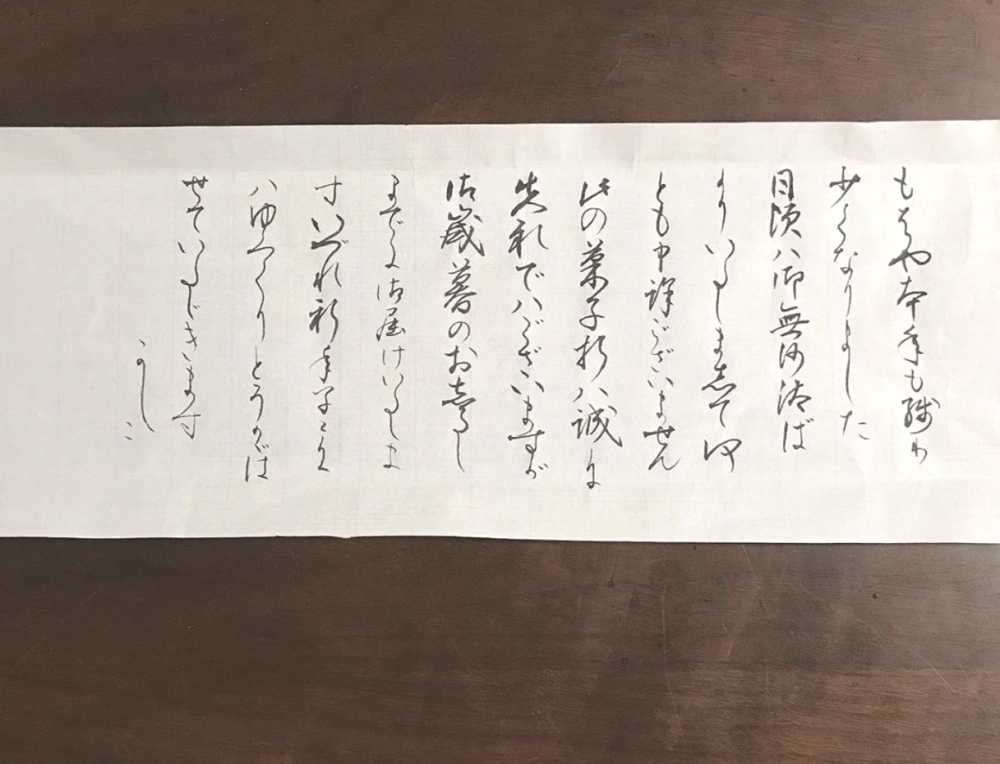 もはや本年も残り
少くなりました
日頃ハ御無沙汰ば
かりいたしまして何
とも申訳ございません
此の菓子折ハ誠に
失礼でハございますが
御歳暮のおしるし
までに御届けいたしま
す いづれ新年早々に
ハゆつくりとうかゞは
せていたゞきます
かしこ